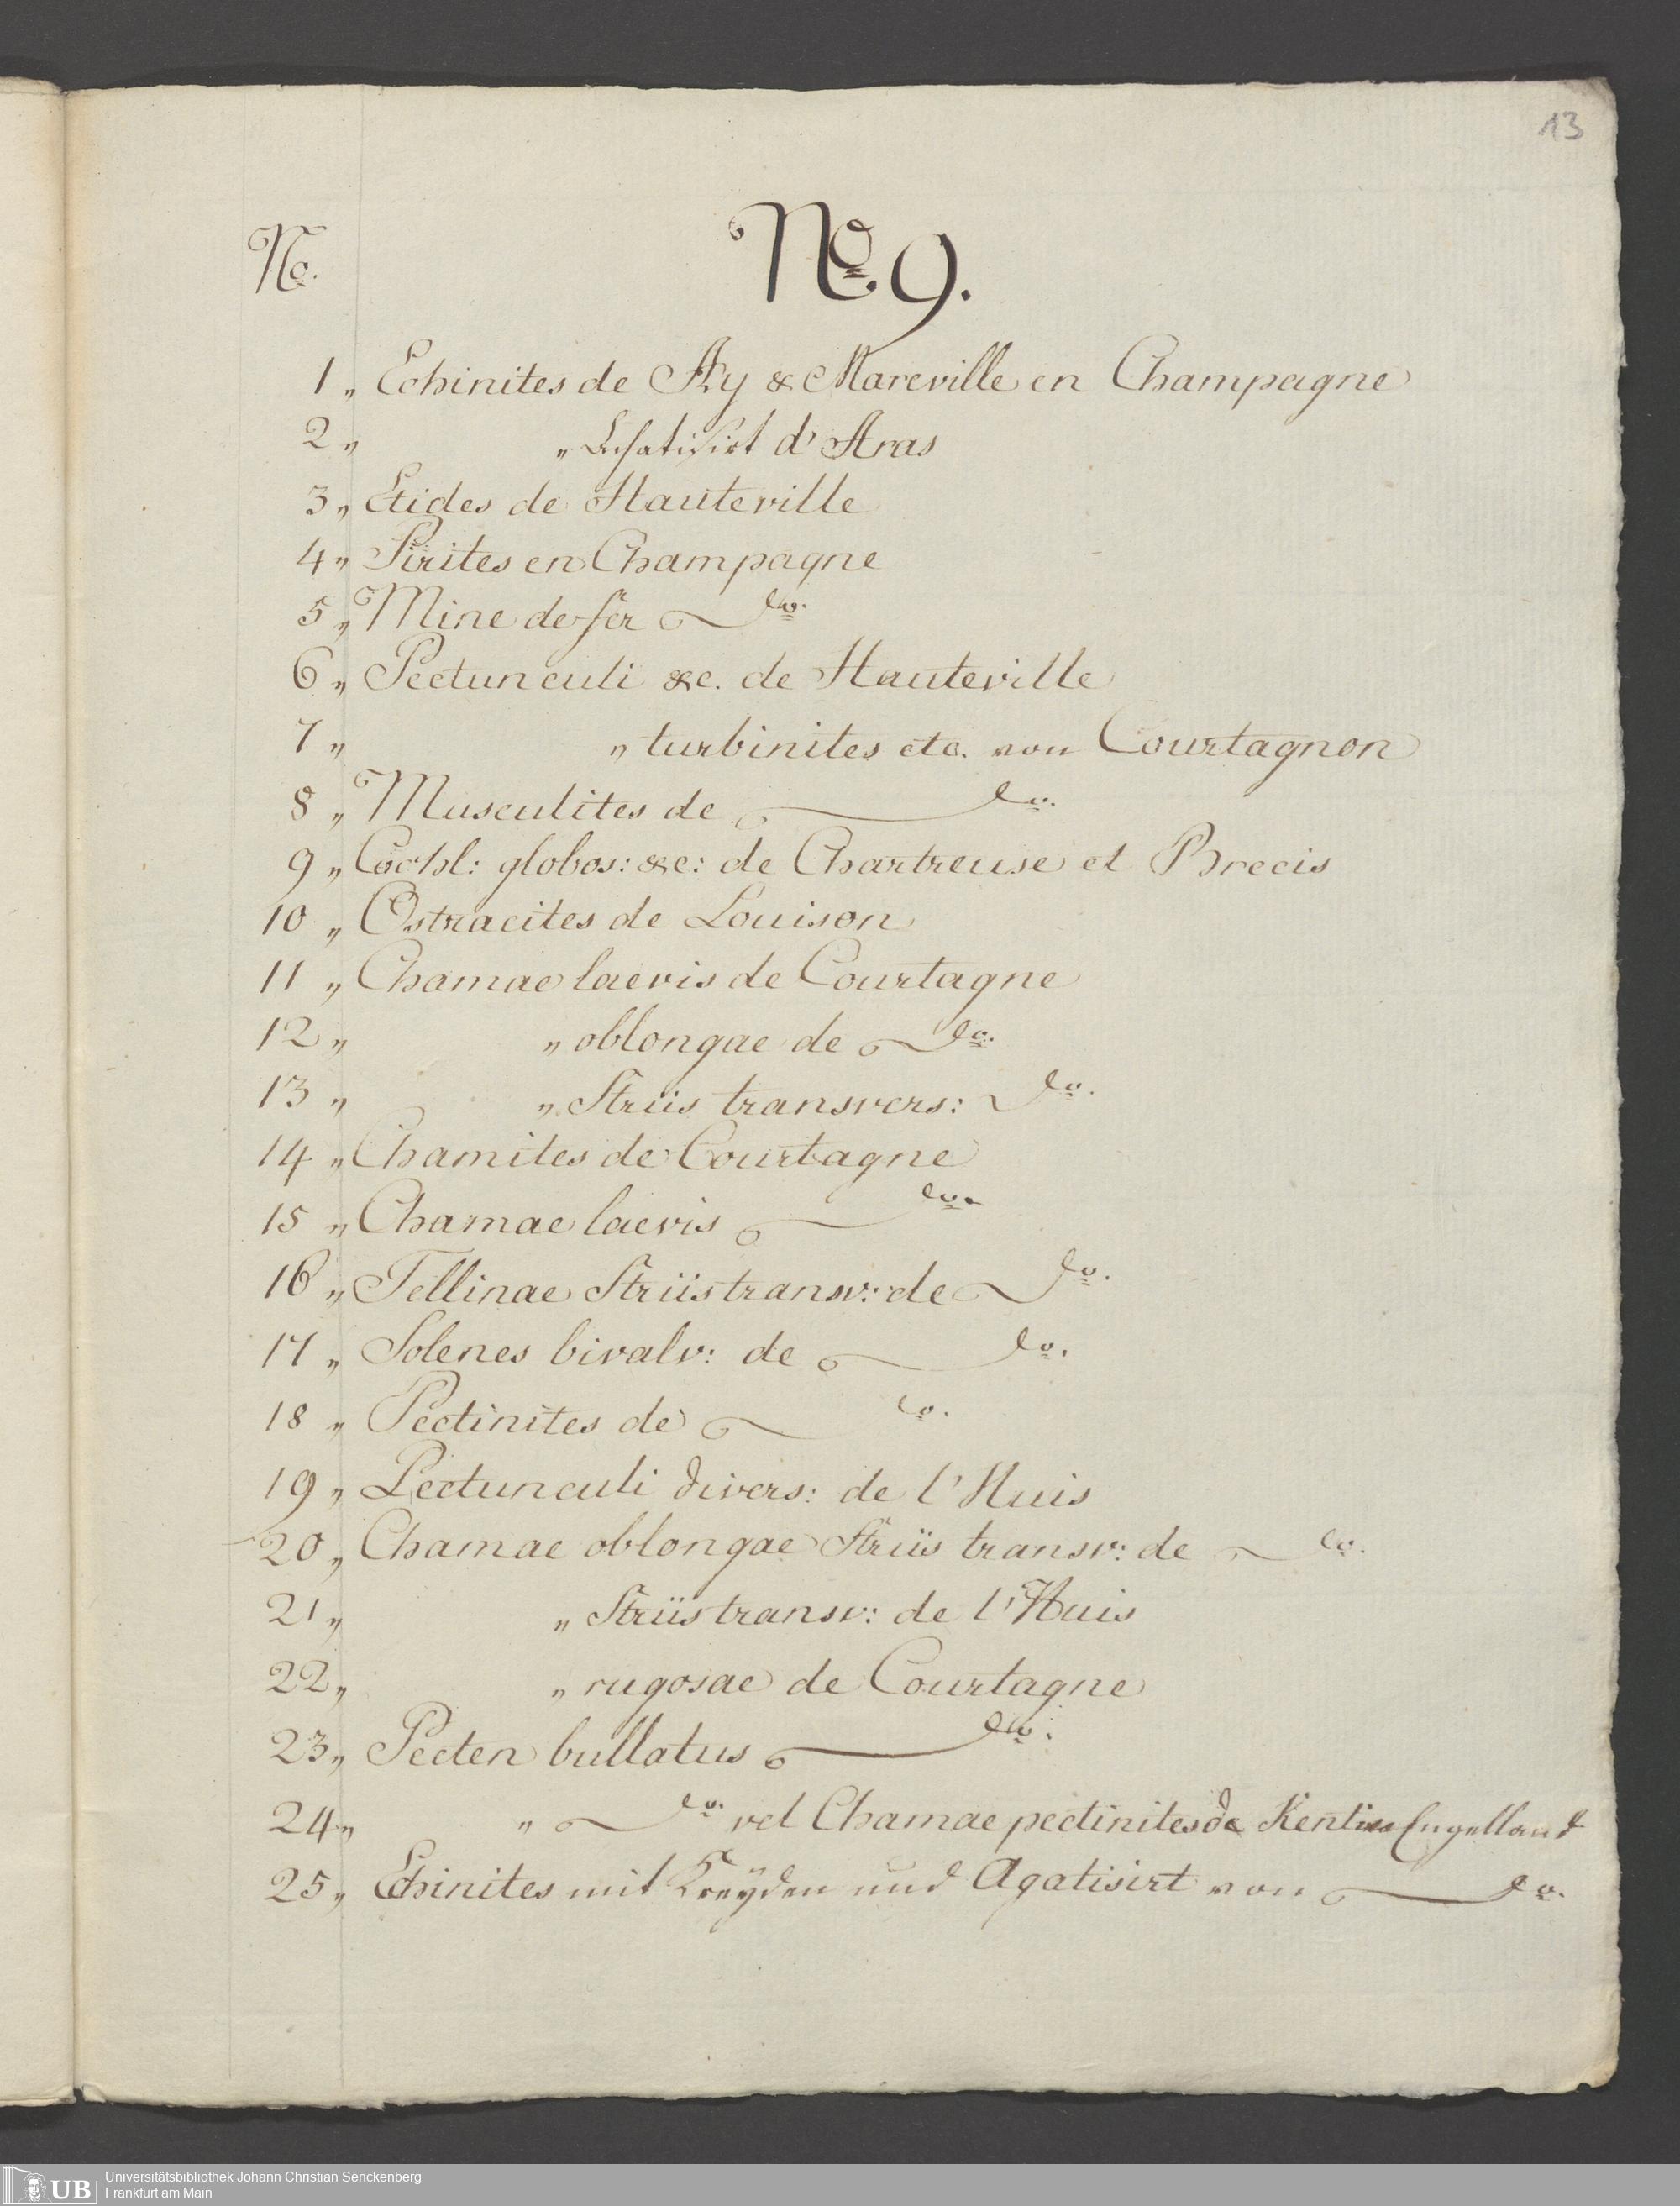 13
No. No. 9.
1 „ Echinites de Ay & Mareville en Champagne
2 „ „ d'Aras
3 „ Etides de Hauteville
4 „ Pirites en Champagne
5 „ Mine de fer do.
6 „ Pectunculi &c. de Hauteville
7 „ „ turbinites etc. von Courtagnon
8 „ Musculites de do.
9 „ Cochl: globos: &c: de Chartreuse et Brecis
10 „ Ostracites de Louison
11 „ Chamae laevis de Courtagne
12 „ „ oblongae de do.
13 „ „ Striis transvers: do.
14 „ Chamites de Courtagne
15 „ Chamae laevis do.
16 „ Tellinae Striis transv: de do.
17 „ Solenes bivalv: de do.
18 „ Pectinites de do.
19 „ Pectunculi divers: de l'Huis
20 „ Chamae oblongae Striis transv: de do.
21 „ „ Striis transv: de l'Huis
22 „ „ rugosae de Courtagne
23 „ Pecten bullatus do.
24 „ „ do. vel Chamae pectinites de Kent Engelland
25 „ Echinites mit Kreyden und Agatisirt von do.
UB
Universitätsbibliothek Johann Christian Senckenberg
Frankfurt am Main